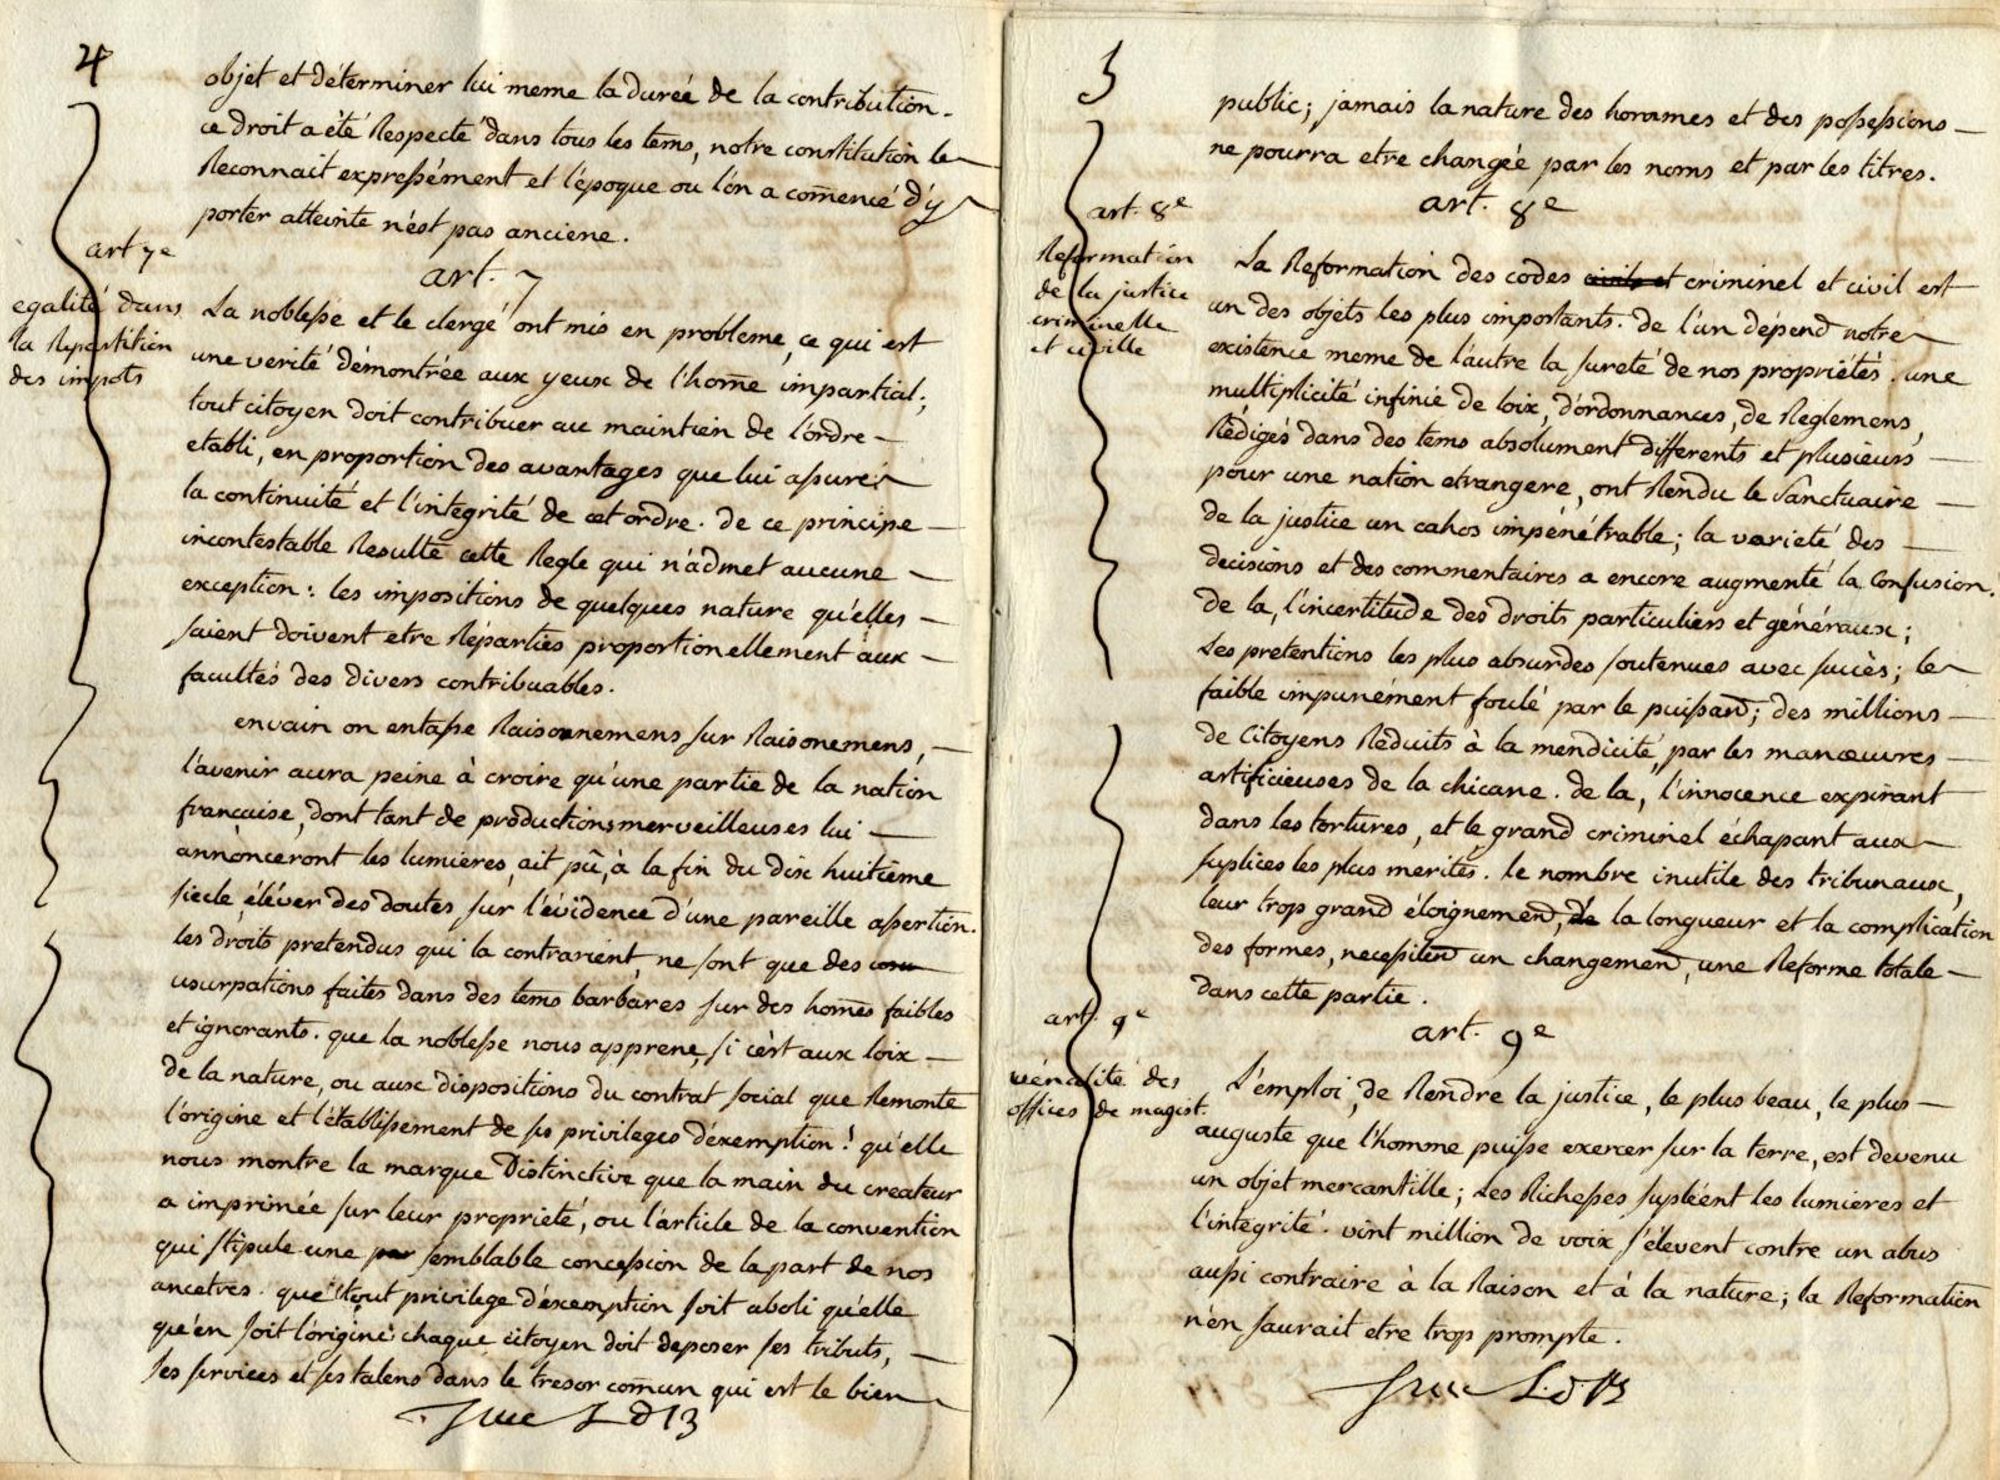 4
objet et déterminer lui meme la durée de la contribution.
ce droit a été Respecté dans tous les tems, notre constitution le
Reconnait expressément et l'époque ou l'on a com̄encé d'y
porter atteinte n'est pas anciene.
art 7e
egalité dans
la Repartition
des impots
art. 7
La noblesse et le clergé ont mis en probleme, ce qui est
une verité démontrée aux yeux de l'hom̄e impartial;
tout citoyen doit contribuer au maintien de l'ordre
etabli, en proportion des avantages que lui assure
la continuité et l'integrité de cet ordre. de ce principe
incontestable Resulte cette Regle qui n'admet aucune
exception: les impositions de quelques nature qu'elles
saient doivent etre Réparties proportionellement aux
facultés des divers contribuables.
envain on entasse Raisonnemens sur Raisonemens,
l'avenir aura peine à croire qu'une partie de la nation
francaise, dont tant de productions merveilleuses lui
annonceront les lumieres, ait pû, à la fin du dix huitième
siecle, éléver des doutes sur l'évidence d'une pareille assertion.
les droits pretendus qui la contrarient, ne sont que des
usurpations faites dans des tems barbares sur des hom̄es faibles
et ignorants. que la noblesse nous apprene, si c'est aux loix
de la nature, ou aux dispositions du contrat social que Remonte
l'origine et l'établissement de ses privileges d'exemption! qu'elle
nous montre la marque Distinctive que la main du createur
a imprimée sur leur propriété, ou l'article de la convention
qui stipule une semblable concession de la part de nos
ancetres. que tout privilege d'exemption soit aboli qu'elle
qu'en soit l'origine chaque citoyen doit deposer ses tributs,
ses services et ses talens dans le tresor com̄un qui est le bien
5
public; jamais la nature des hommes et des possessions
ne pourra etre changée par les noms et par les titres.
art. 8e
art. 8e
Reformation
de la justice
criminelle
et civille
La Reformation des codes civils et criminel et civil est
un des objets les plus importants. de l'un dépend notre
existence meme de l'autre la sureté de nos propriétés. une
multiplicité infinie de loix, d'ordonnances, de Reglemens,
Rédigés dans des tems absolument differents et plusieurs
pour une nation etrangere, ont Rendu le Sanctuaire
de la justice un cahos impénétrable; la varieté des
decisions et des commentaires a encore augmenté la Confusion.
de la, l'incertitude des droits particuliers et généraux;
Les pretentions les plus absurdes soutenues avec succès; le
faible impunément foulé par le puissand; des millions
de Citoyens Réduits à la mendicité, par les manœuvres
artificieuses de la chicane. de la, l'innocence expirant
dans les tortures, et le grand criminel échapant aux
suplices les plus merités. le nombre inutile des tribunaux,
leur trop grand éloignemend, de la longueur et la complication
des formes, necessitend un changemend, une Reforme totale
dans cette partie.
art. 9e
art. 9e
vénalité des
offices de magist.
L'emploi, de Rendre la justice, le plus beau, le plus
auguste que l'homme puisse exercer sur la terre, est devenu
un objet mercantille; Les Richesses supléent les lumieres et
l'integrité. vint million de voix s'élevent contre un abus
aussi contraire à la Raison et à la nature; la Reformation
n'en saurait etre trop prompte.